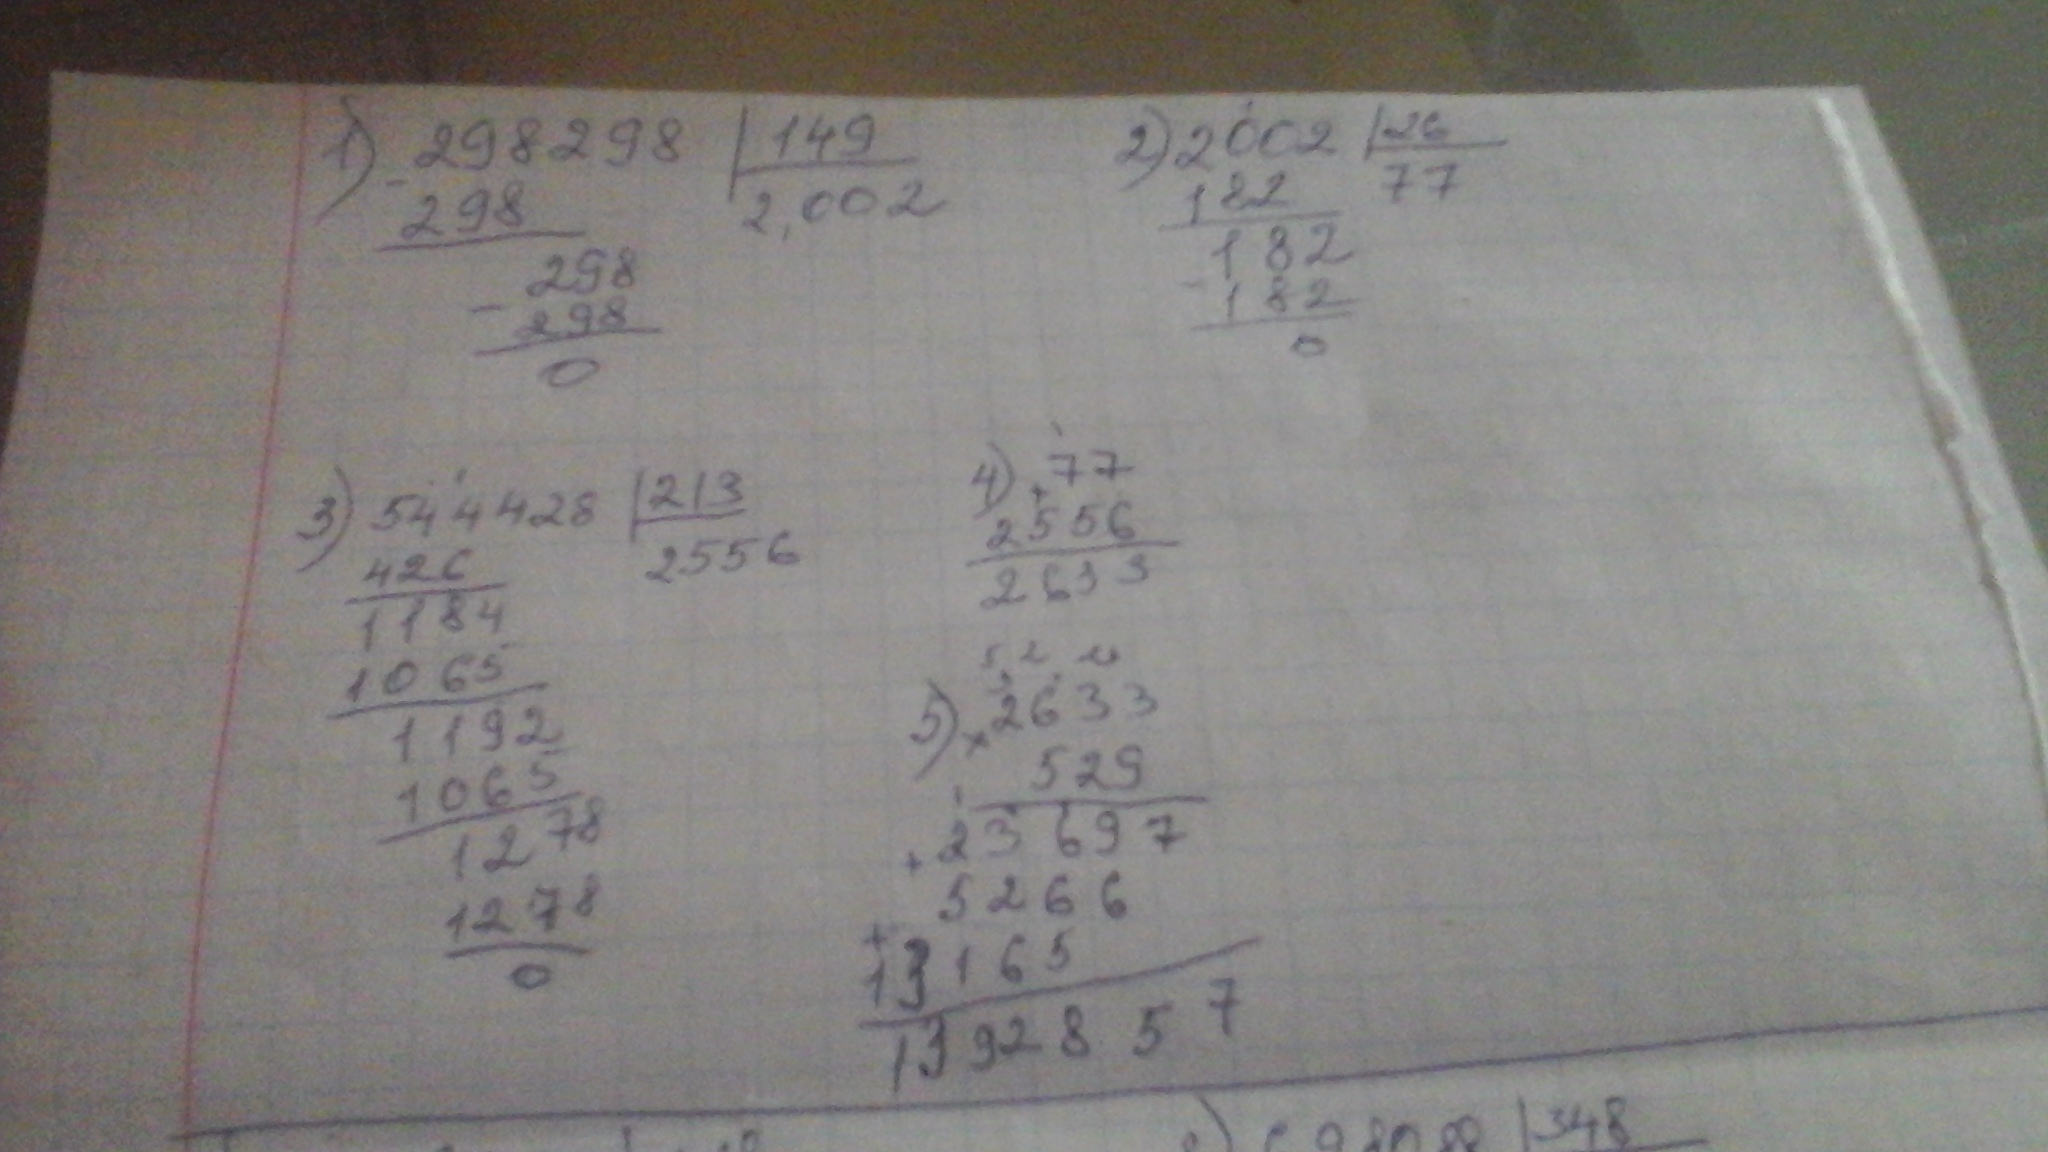 1) 298298 | 149
- 298 2,002
298
- 298
0
2) 2002 | 26
182 77
182
- 182
0
3) 544428 | 213
426 2556
1184
1065
1192
1065
1278
1278
0
4) + 77
2556
2633
5) × 2633
529
+ 23697
5266
+ 13165
1392857
348